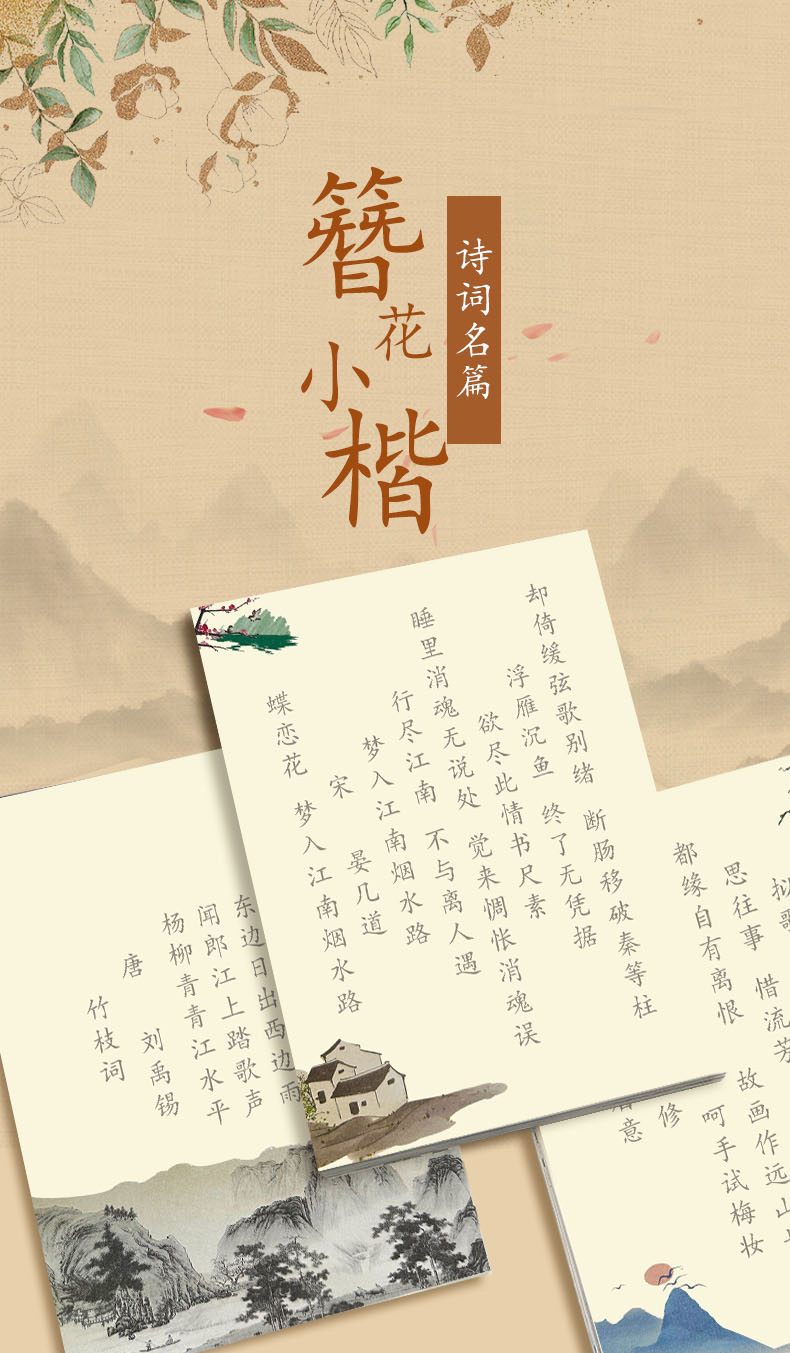 簪花小楷
诗词名篇
蝶恋花 梦入江南烟水路
宋 晏几道
梦入江南烟水路
行尽江南 不与离人遇
睡里消魂无说处 觉来惆怅消魂误
欲尽此情书尺素
浮雁沉鱼 终了无凭据
却倚缓弦歌别绪 断肠移破秦等柱
竹枝词
唐 刘禹锡
杨柳青青江水平
闻郎江上踏歌声
东边日出西边雨
意
修
呵手试梅妆
都缘自有离恨 故画作远山
思往事 惜流芳
拟歌